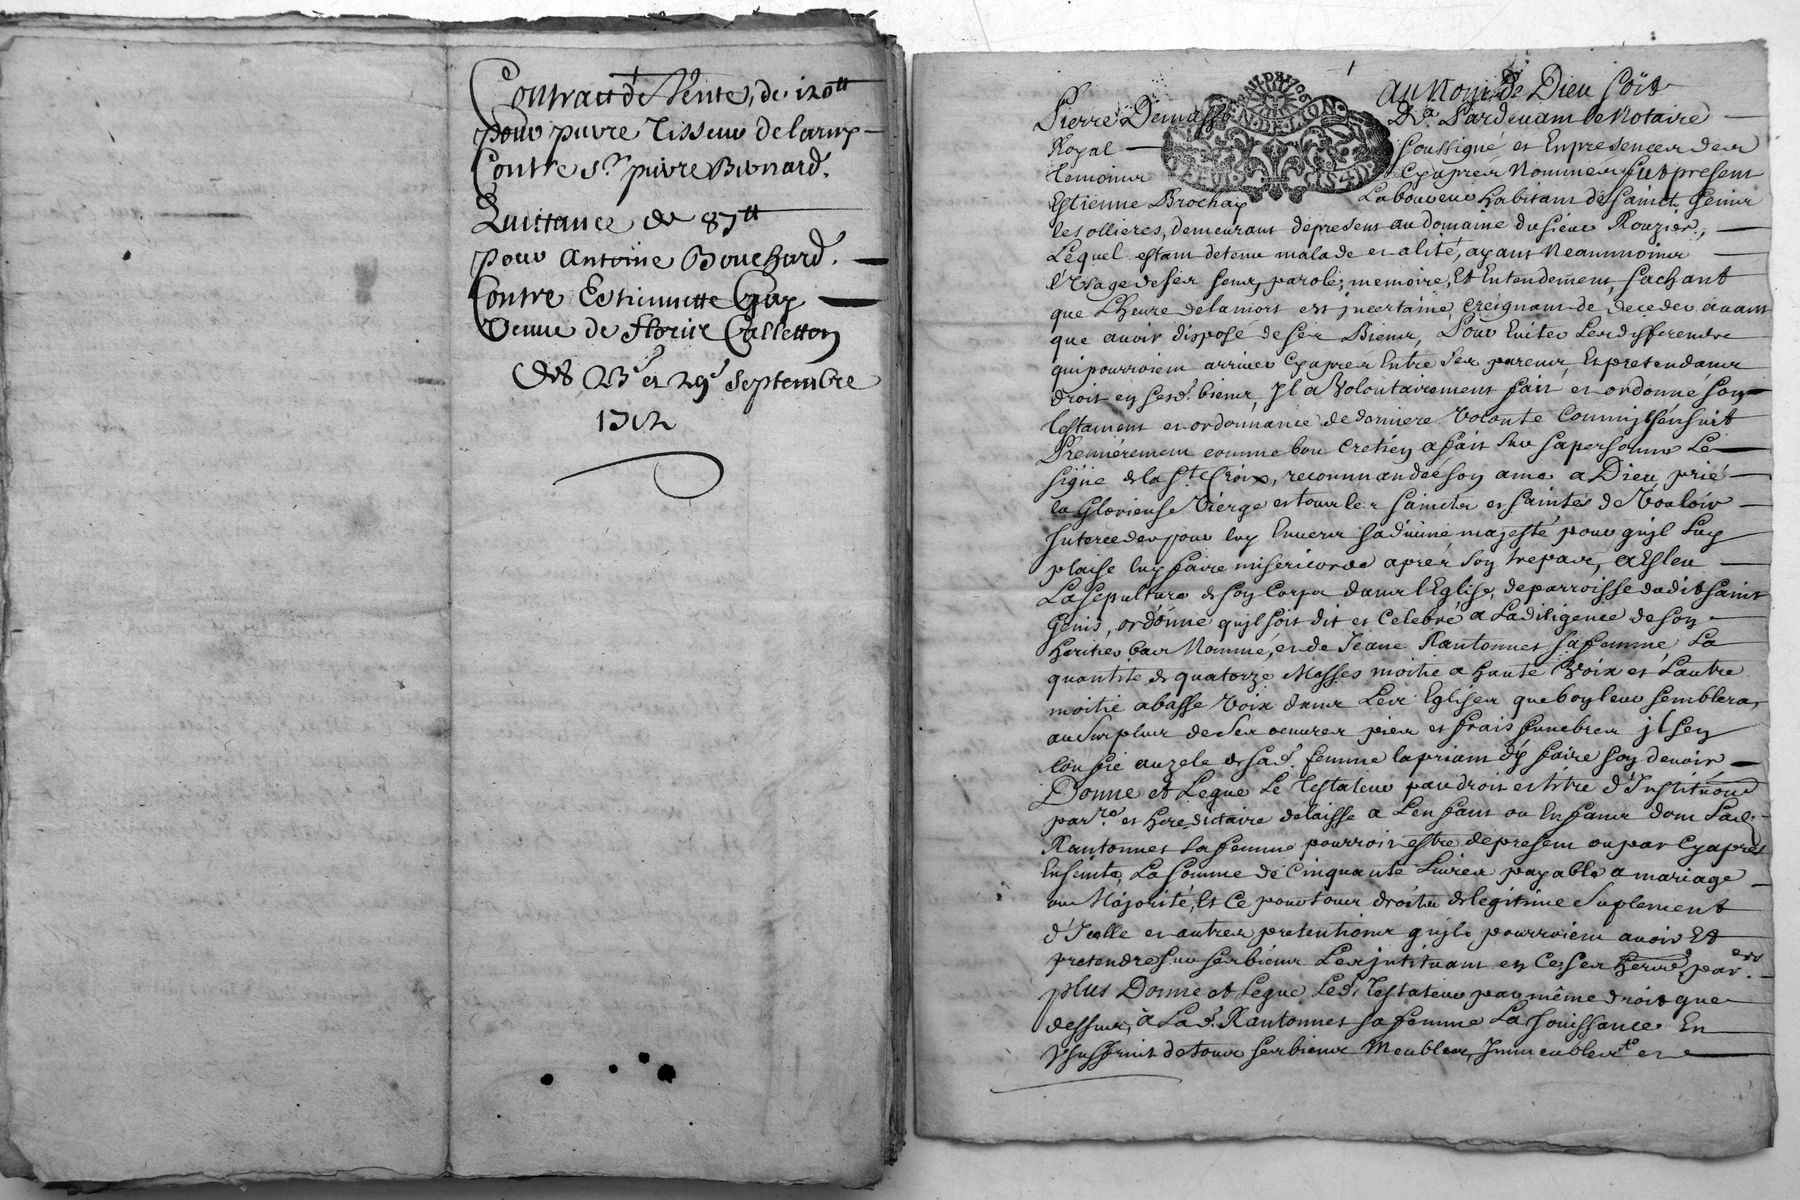 Contract de Vente, de 120tt
pour pierre Tisseur de larny
Contre Sr. pierre Bernard.
Quittance de 87tt
pour Antoine Bouchard.
Contre Estiennette Guy
Veuve de Floris Colletton
des 23e et 29e Septembre
1712
Au Nom de Dieu Soit
Pierre Demasso Par devant le Notaire
Royal soussigné et En presence des
temoins Cyaprés Nommés fut present
Estienne Brochay Laboureur habitant de Sainct Genis
les ollieres, demeurant de present au domaine du sieur Rouzier,
Lequel estant detenu malade et alité, ayant Neanmoins
l'Usage de ses sens, parole, memoire, Et Entendement, sachant
que L'heure de la mort est jncertaine, creignant de deceder avant
que avoir disposé de ses Biens, Pour Eviter Les differends
qui pourroient arriver Cyaprés Entre Ses parens, Et pretendans
droit en sesd. biens, Jl a Volontairement fait et ordonné son
testament et ordonnance de derniere Volonté Comm'jl s'ensuit
Premiérement comme bon Cretien a fait Sur sa personne Le
signe de la Ste. Croix, recommandé son ame a Dieu, prié
la Glorieuse Vierge et tous les saincts et saintes de Vouloir
Interceder pour luy Envers sa divine majesté pour qu'jl Luy
plaise luy faire misericorde aprés son trepas, a Esleu
La sepulture de son Corps dans l'Eglise de parroisse dudit saint
Genis, ordonne qu'jl soit dit et Celebré a La diligence de son
heritier bas Nommé, et de Jeane Rantonnet sa femme, La
quantité de quatorze Messes moitié a haute Voix et L'autre
moitié a basse Voix dans Les Eglises que bon leur semblera,
au Surplus de Ses oeuvres pies et frais funebres jl s'en
Confie au zele de sad. femme la priant d'y faire son devoir
Donne et Legue Le Testateur par droit et titre d'Institution
par.re et hereditaire delaisse a L'enfant ou Enfans dont Lad.
Rantonnet sa femme pourroit estre de present ou par Cyaprés
Enseinte, La somme de Cinquante Livres payable a mariage
ou Majorité, Et Ce pour tous droits de legitime Suplement
d'Jcelle et autres pretentions qu'jls pourroient avoir Et
pretendre Sur ses biens Les jnstituant en Ce ses heritiers par.ers
plus Donne et Legue Led. Testateur par même droit que
dessus, à Lad. Rantonnet sa femme La Jouissance En
Usufruit de tous ses biens Meubles, Immeubles et